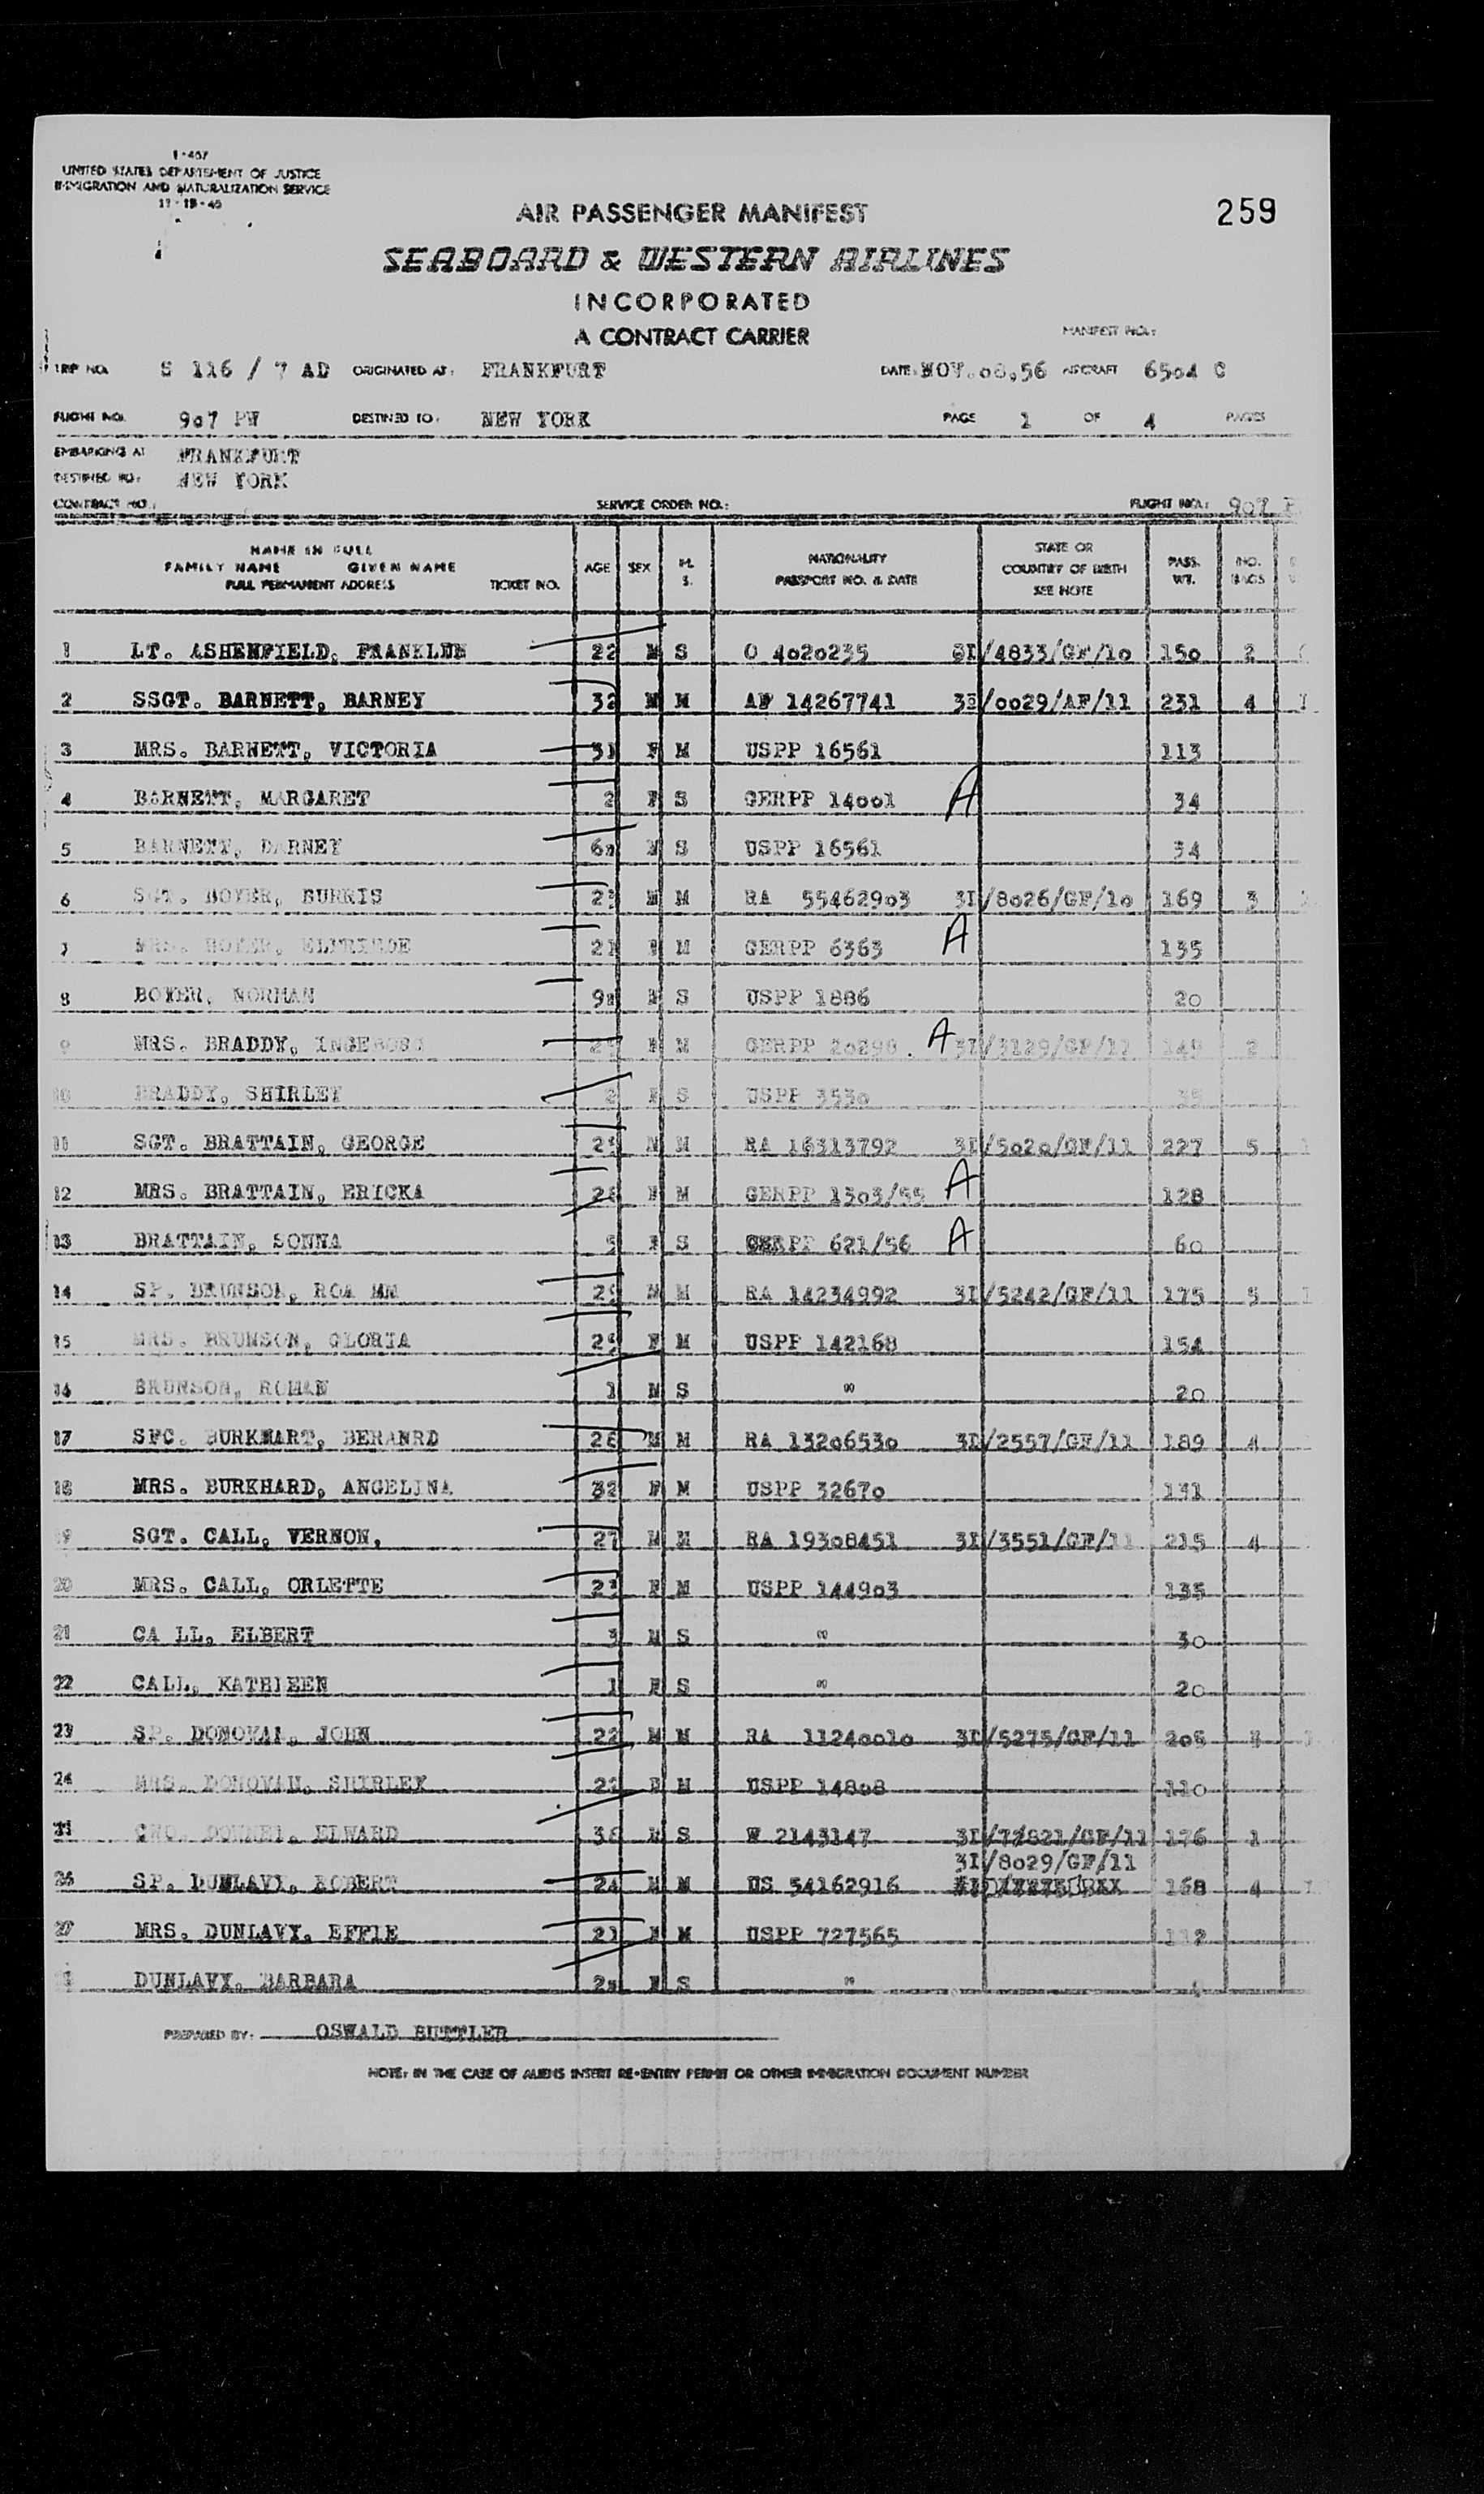 I-407
UNITED STATES DEPARTEMENT OF JUSTICE
IMMIGRATION AND NATURALIZATION SERVICE
259
AIR PASSENGER MANIFEST
SEABOARD & WESTERN AIRLINES
INCORPORATED
A CONTRACT CARRIER
MANIFEST NO.:
TRIP NO. S 116 / 7 AD ORIGINATED AT: FRANKFURT DATE: NOV.08,56 AIRCRAFT 6504 C
FLIGHT NO. 907 PW DESTINED TO: NEW YORK PAGE 1 OF 4 PAGES
EMBARKING AT FRANKFURT
DESTINED TO: NEW YORK
CONTRACT NO.: SERVICE ORDER NO.: FLIGHT NO.: 907
NAME IN FULL
FAMILY NAME GIVEN NAME
FULL PERMANENT ADDRESS TICKET NO. AGE SEX M. S. NATIONALITY PASSPORT NO. & DATE STATE OR COUNTRY OF BIRTH SEE NOTE PASS. WT. NO. BAGS
1 LT. ASHENFIELD, FRANKLIN 22 M S O 4020235 3I/4833/GF/10 150 2
2 SSGT. BARNETT, BARNEY 32 M M AF 14267741 3I/0029/AF/11 231 4
3 MRS. BARNETT, VICTORIA 31 F M USPP 16561 113
4 BARNETT, MARGARET 2 F S GERPP 14001 A 34
5 BARNETT, BARNEY 6m M S USPP 16561 34
6 SGT. BOYER, BURRIS M M RA 55462903 3I/8026/GF/10 169 3
7 MRS. BOYER, 21 F M GERPP 6363 A 135
8 BOYER, NORMAN 9m M S USPP 1886 20
9 MRS. BRADDY, F M GERPP 20298 A 3I/3129/GF/11 149 2
10 BRADDY, SHIRLEY 2 F S USPP 3530 35
11 SGT. BRATTAIN, GEORGE M M RA 16313792 3I/5020/GF/11 227 5
12 MRS. BRATTAIN, ERICKA F M GERPP 1303/55 A 128
13 BRATTAIN, SONNA 5 F S GERPP 621/56 A 60
14 SP. BRUNSON, ROA MN M M RA 14234992 3I/5242/GF/11 175 5
15 MRS. BRUNSON, GLORIA F M USPP 142168 154
16 BRUNSON, ROMAN 1 M S " 20
17 SFC. BURKHART, BERANRD M M RA 13206530 3I/2557/GF/11 189 4
18 MRS. BURKHARD, ANGELINA 32 F M USPP 32670 131
19 SGT. CALL, VERNON, 27 M M RA 19308451 3I/3551/GF/11 215 4
20 MRS. CALL, ORLETTE F M USPP 144903 135
21 CA LL, ELBERT 3 M S " 30
22 CALL, KATHLEEN 1 F S " 20
23 SP. DONOVAN, JOHN 22 M M RA 11240010 3I/5275/GF/11 205
24 MRS. DONOVAN, SHIRLEY F M USPP 14808 110
CWO. EDWARD M S W 2143147 3I/77821/GF/11 176 1
3I/8029/GF/11
26 SP. DUNLAVY, ROBERT 24 M M US 54162916 168 4
27 MRS. DUNLAVY, EFFIE 21 F M USPP 727565
DUNLAVY, BARBARA 2m F S "
PREPARED BY: OSWALD BUTTLER
NOTE: IN THE CASE OF ALIENS INSERT RE-ENTRY PERMIT OR OTHER IMMIGRATION DOCUMENT NUMBER